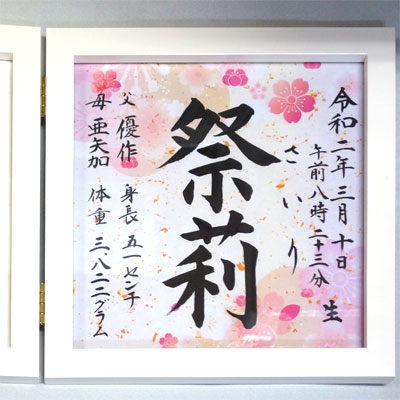 令和二年三月十日
午前八時二十三分
生
さいり
祭莉
父 優作 身長 五一センチ
母 亜矢加 体重 三、八二二グラム